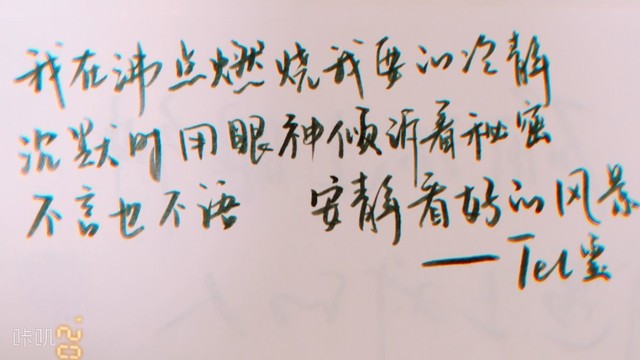 我在沸点燃烧我要的冷静
沉默时用眼神倾诉着秘密
不言也不语 安静看好的风景
——Tel
咔叽
02.